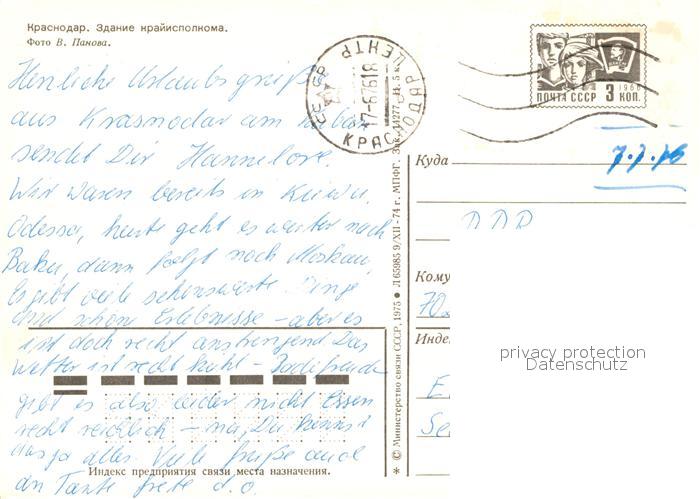 Краснодар. Здание крайисполкома.
Фото В. Панова.
Herzliche Urlaubsgrüße
aus Krasnodar am Kuban
sendet Dir Hannelore.
Wir waren bereits in Kiew,
Odessa, heute geht es weiter nach
Baku, dann folgt noch Moskau,
Es gibt viele sehenswerte Dinge
und schöne Erlebnisse – aber es
ist doch recht anstrengend Das
Wetter ist recht kühl – Badefreuden
gibt es also leider nicht Essen
recht reichlich – na, Du kennst
das ja alles. Viele Grüße auch
an Tante Grete d. o.
Индекс предприятия связи места назначения.
СССР КРАСНОДАР ЦЕНТР
-7-67618
ПОЧТА СССР 3 КОП.
1966
* © Министерство связи СССР, 1975 ● Л 65985 9/XII - 74 г. МПФГ. Зак. 14277 Ц. 5 к.
Куда
7.7.76
DDR
Кому
Инде
privacy protection
Datenschutz
E
Se